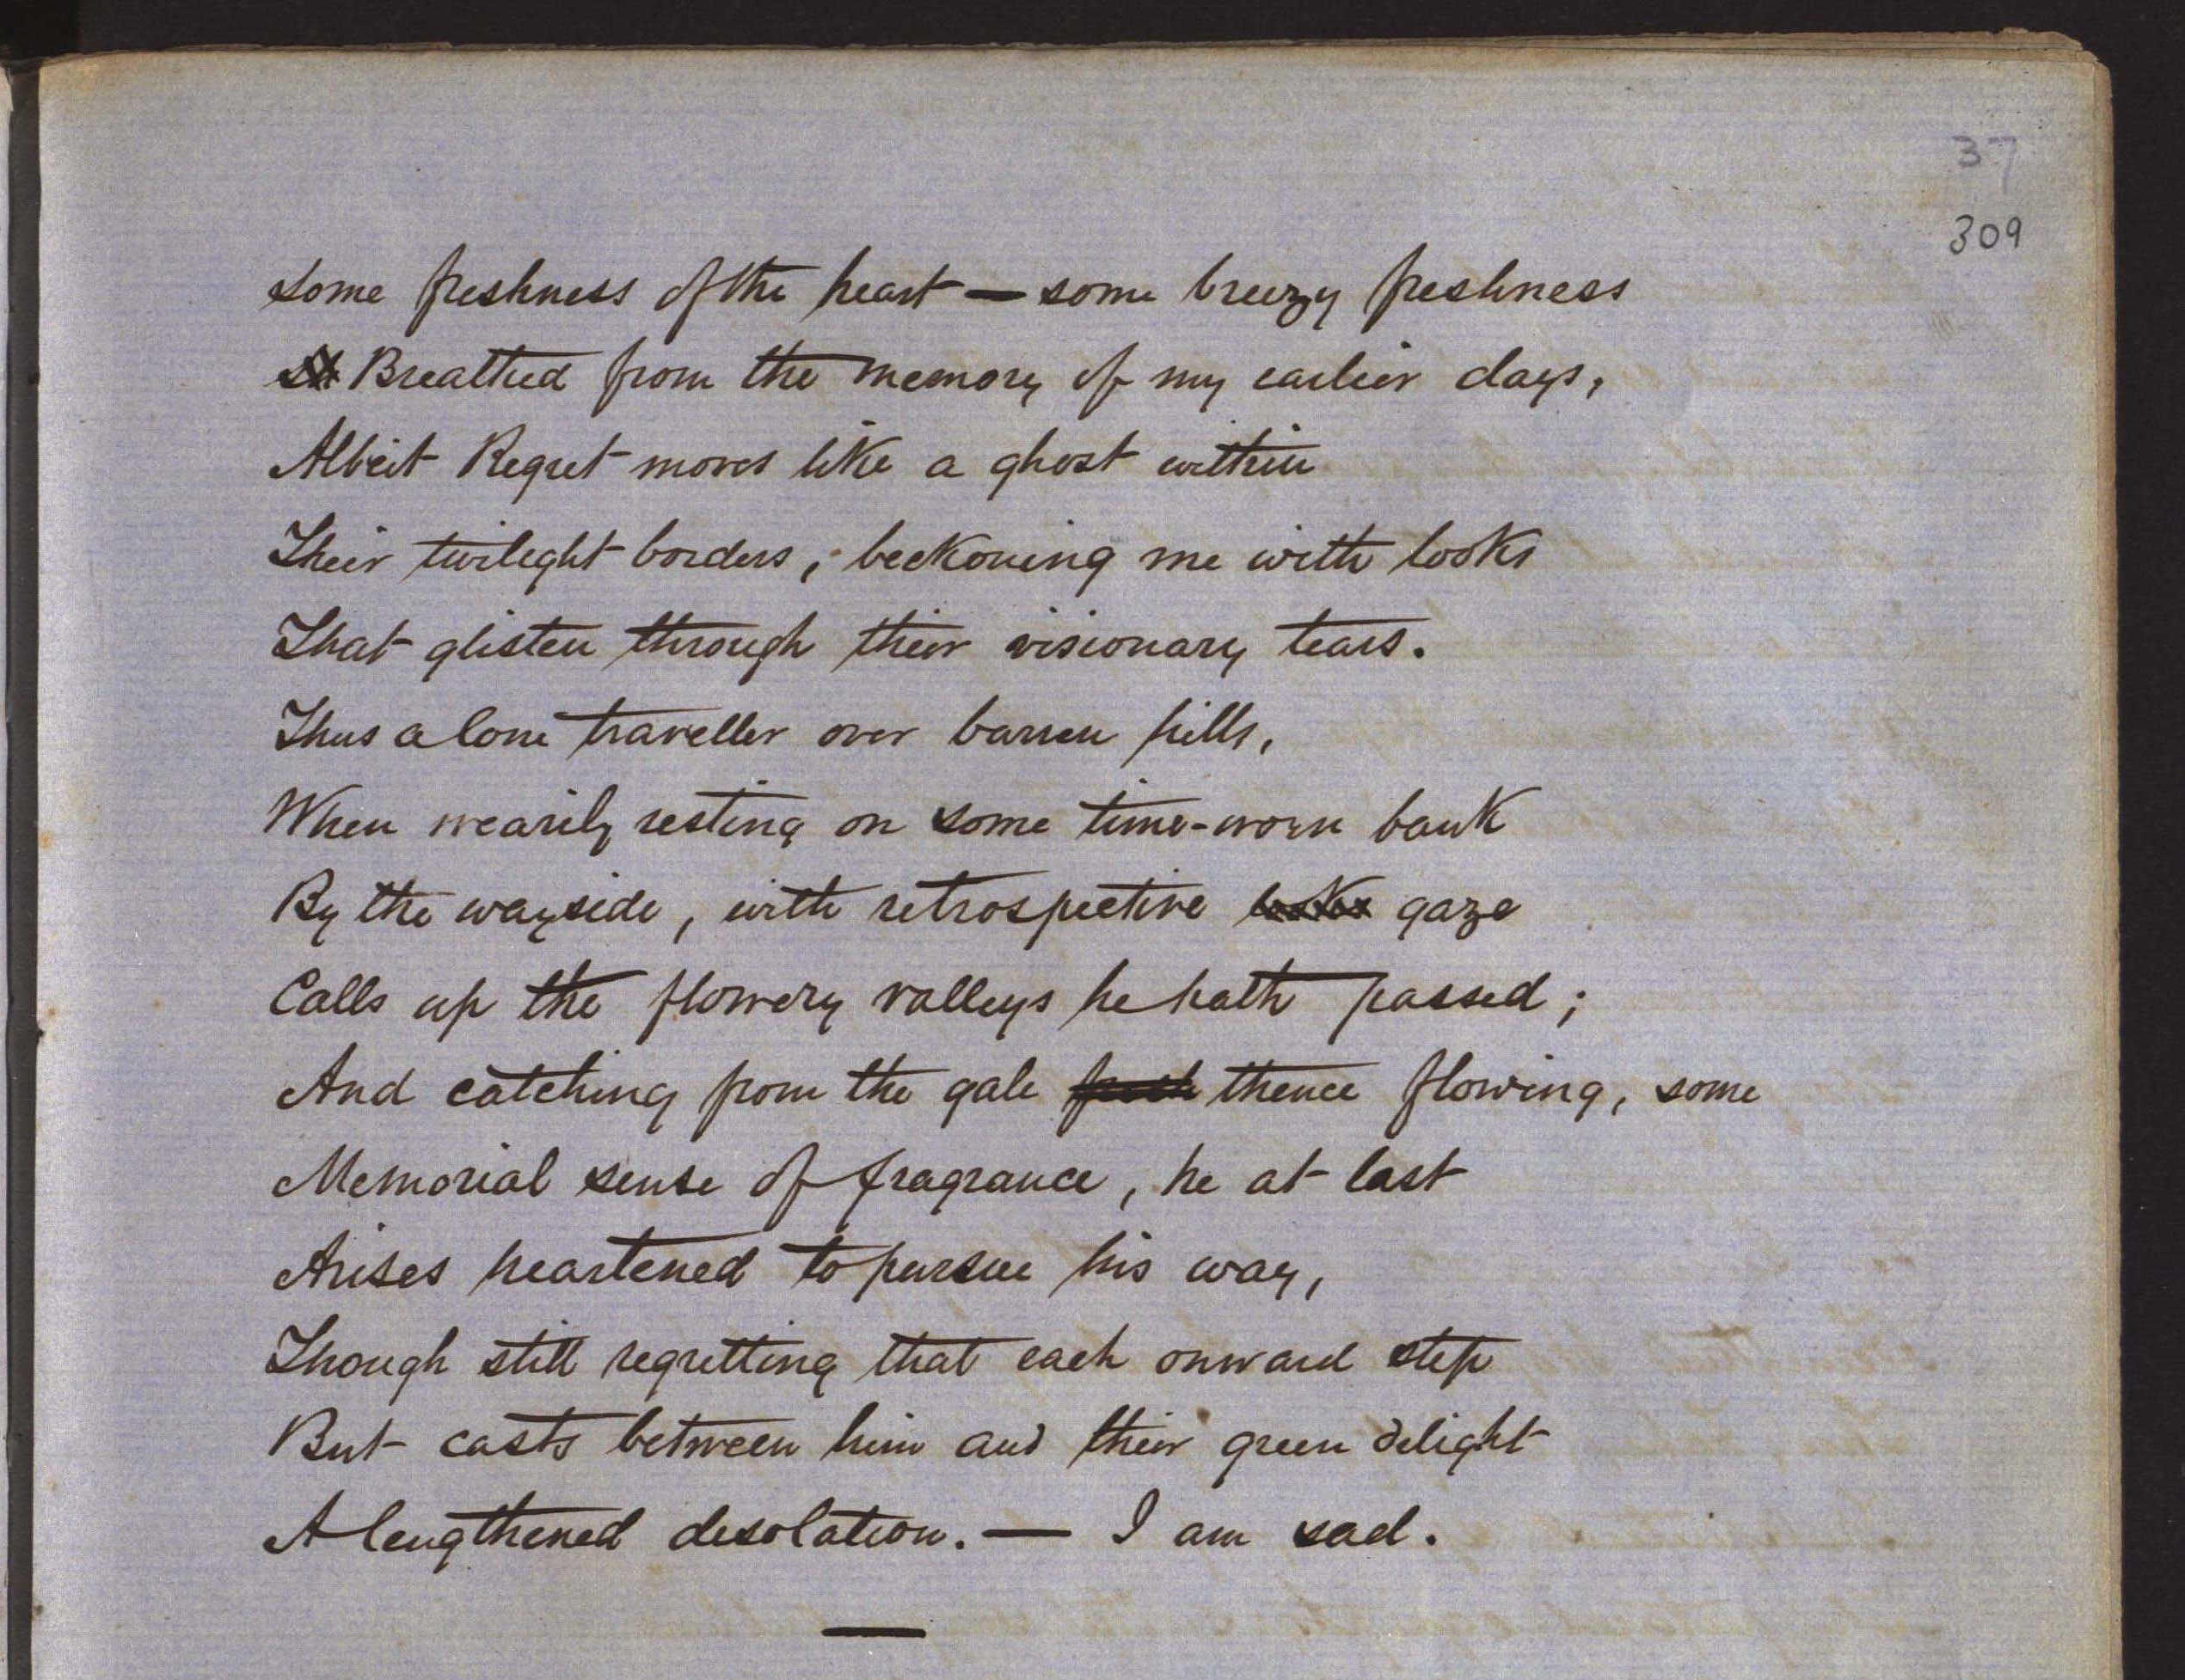 37
309
some freshness of the heart — some breezy freshness
Breathed from the memory of my earlier days,
Albeit Regret moves like a ghost within
Their twilight borders, beckoning me with looks
That glisten through their visionary tears.
Thus a lone traveller over barren hills,
When wearily resting on some time-worn bank
By the wayside, with retrospective looks gaze
Calls up the flowery valleys he hath passed;
And catching from the gale fresh thence flowing, some
Memorial sense of fragrance, he at last
Arises heartened to pursue his way,
Though still regretting that each onward step
But casts between him and their green delight
A lengthened desolation. — I am sad.